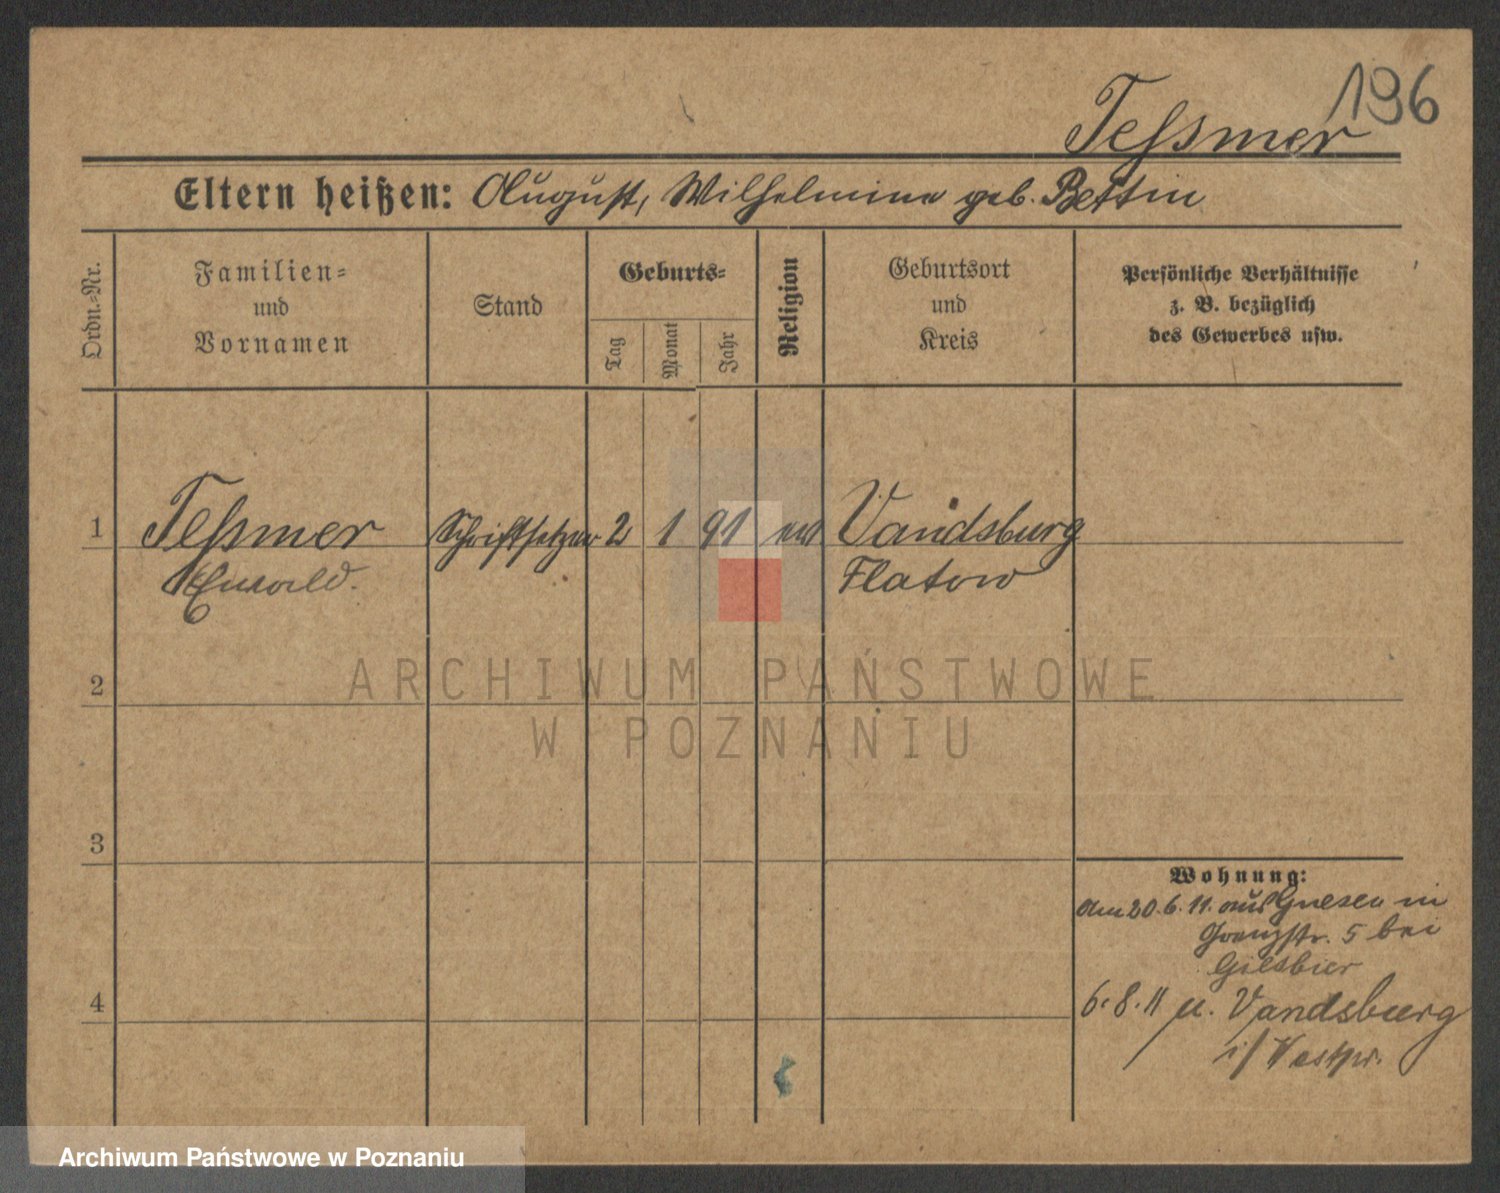 196
Teßmer
Eltern heißen: August, Wilhelmine geb. Bettin
Ordn.-Nr.
Familien-
und
Vornamen
Stand
Geburts-
Tag
Monat
Jahr
Religion
Geburtsort
und
Kreis
Persönliche Verhältnisse
z. B. bezüglich
des Gewerbes usw.
1 Teßmer Schriftsetzer 2 1 91 ev Vandsburg
Ewald. Flatow
2
3
4
Wohnung:
am 20.6.11. aus Gnesen in
Grenzstr. 5 bei
6.8.11 n. Vandsburg
i/ Westpr.
ARCHIWUM PAŃSTWOWE
W POZNANIU
Archiwum Państwowe w Poznaniu